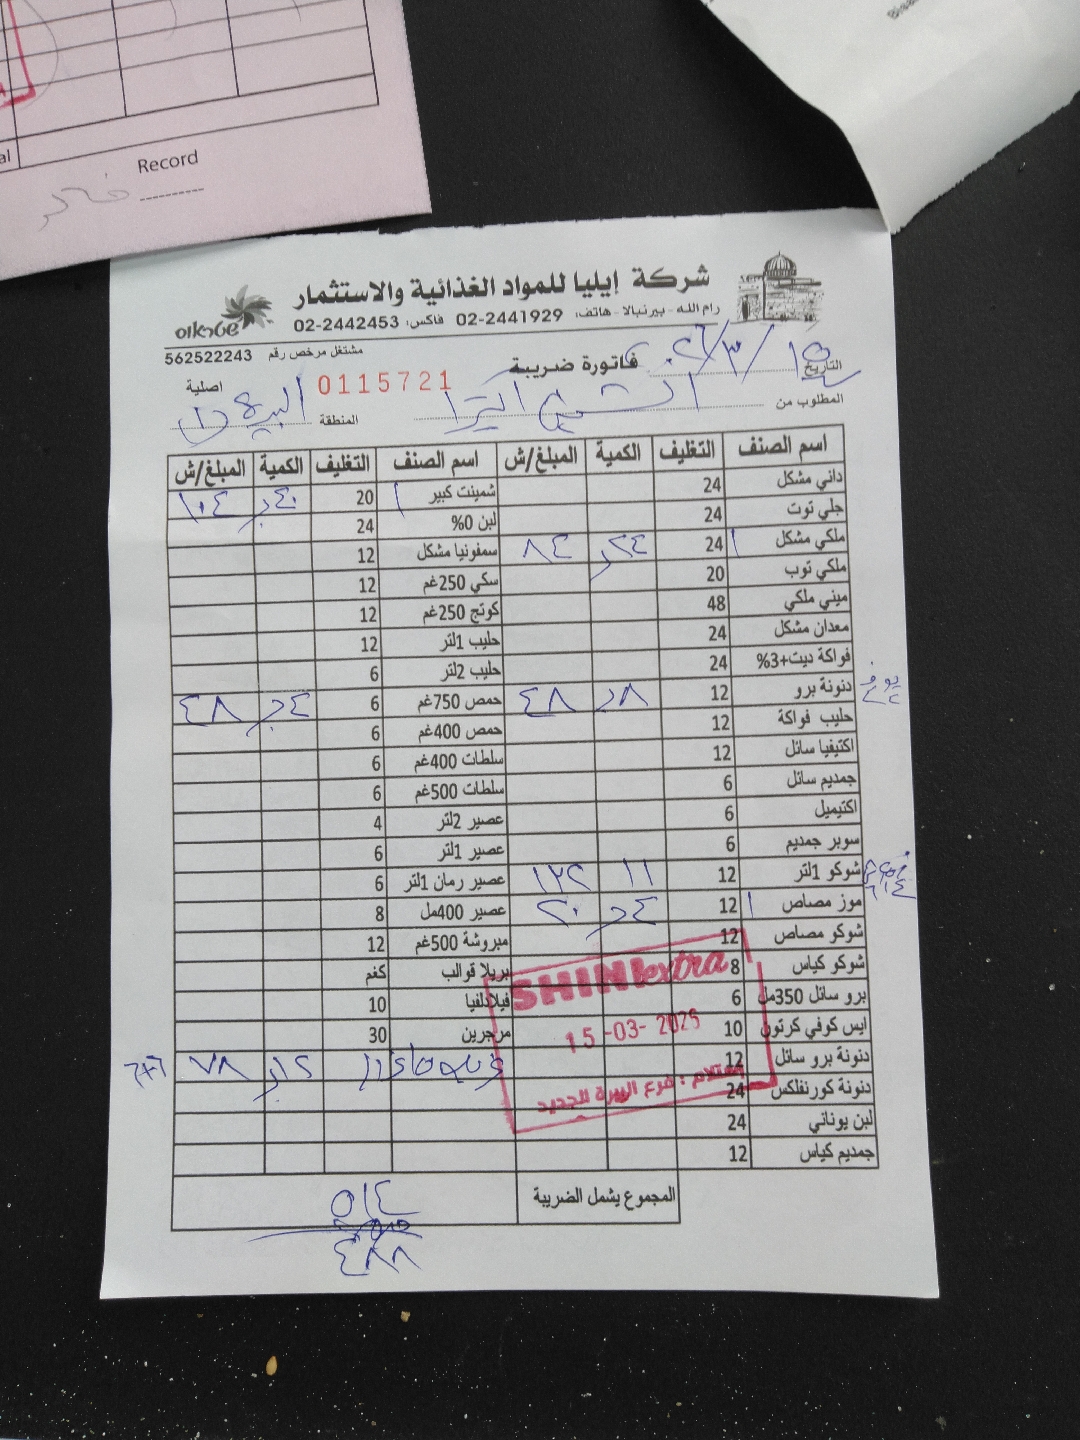 Record
شركة إيليا للمواد الغذائية والاستثمار
رام الله - بيرنبالا - هاتف: 02-2441929 فاكس: 02-2442453
شتراوس
مشتغل مرخص رقم 562522243
التاريخ ١٥/٣/٢٠٢٦
فاتورة ضريبة
0115721 اصلية
المطلوب من
المنطقة البيرة
اسم الصنف التغليف الكمية المبلغ/ش اسم الصنف التغليف الكمية المبلغ/ش
داني مشكل 24 شمينت كبير ١ 20 ١٠٤
جلي توت 24 لبن 0% 24
ملكي مشكل ١ 24 ٢٤ ٨٤ سمفونيا مشكل 12
ملكي توب 20 سكي 250غم 12
ميني ملكي 48 كوتج 250غم 12
معدان مشكل 24 حليب 1لتر 12
فواكة ديت+3% 24 حليب 2لتر 6
دنونة برو 12 ٤٨ حمص 750غم 6 ٤٨
حليب فواكة 12 حمص 400غم 6
اكتيفيا سائل 12 سلطات 400غم 6
جمديم سائل 6 سلطات 500غم 6
اكتيميل 6 عصير 2لتر 4
سوبر جمديم 6 عصير 1لتر 6
شوكو 1لتر 12 ١١ ١٣٢ عصير رمان 1لتر 6
موز مصاص ١ 12 ٢٠ عصير 400مل 8
شوكو مصاص 12 مبروشة 500غم 12
شوكو كياس 8 بريلا قوالب كغم
برو سائل 350مل 6 فيلادلفيا 10
ايس كوفي كرتون 10 مرجرين 30
دنونة برو سائل 12 ١٢ ٧٨ ٦+٦
دنونة كورنفلكس 24
لبن يوناني 24
جمديم كياس 12
SHINI extra
15-03-2026
إستلام : فرع البيرة الجديد
المجموع يشمل الضريبة ٥١٤
٤٨٨